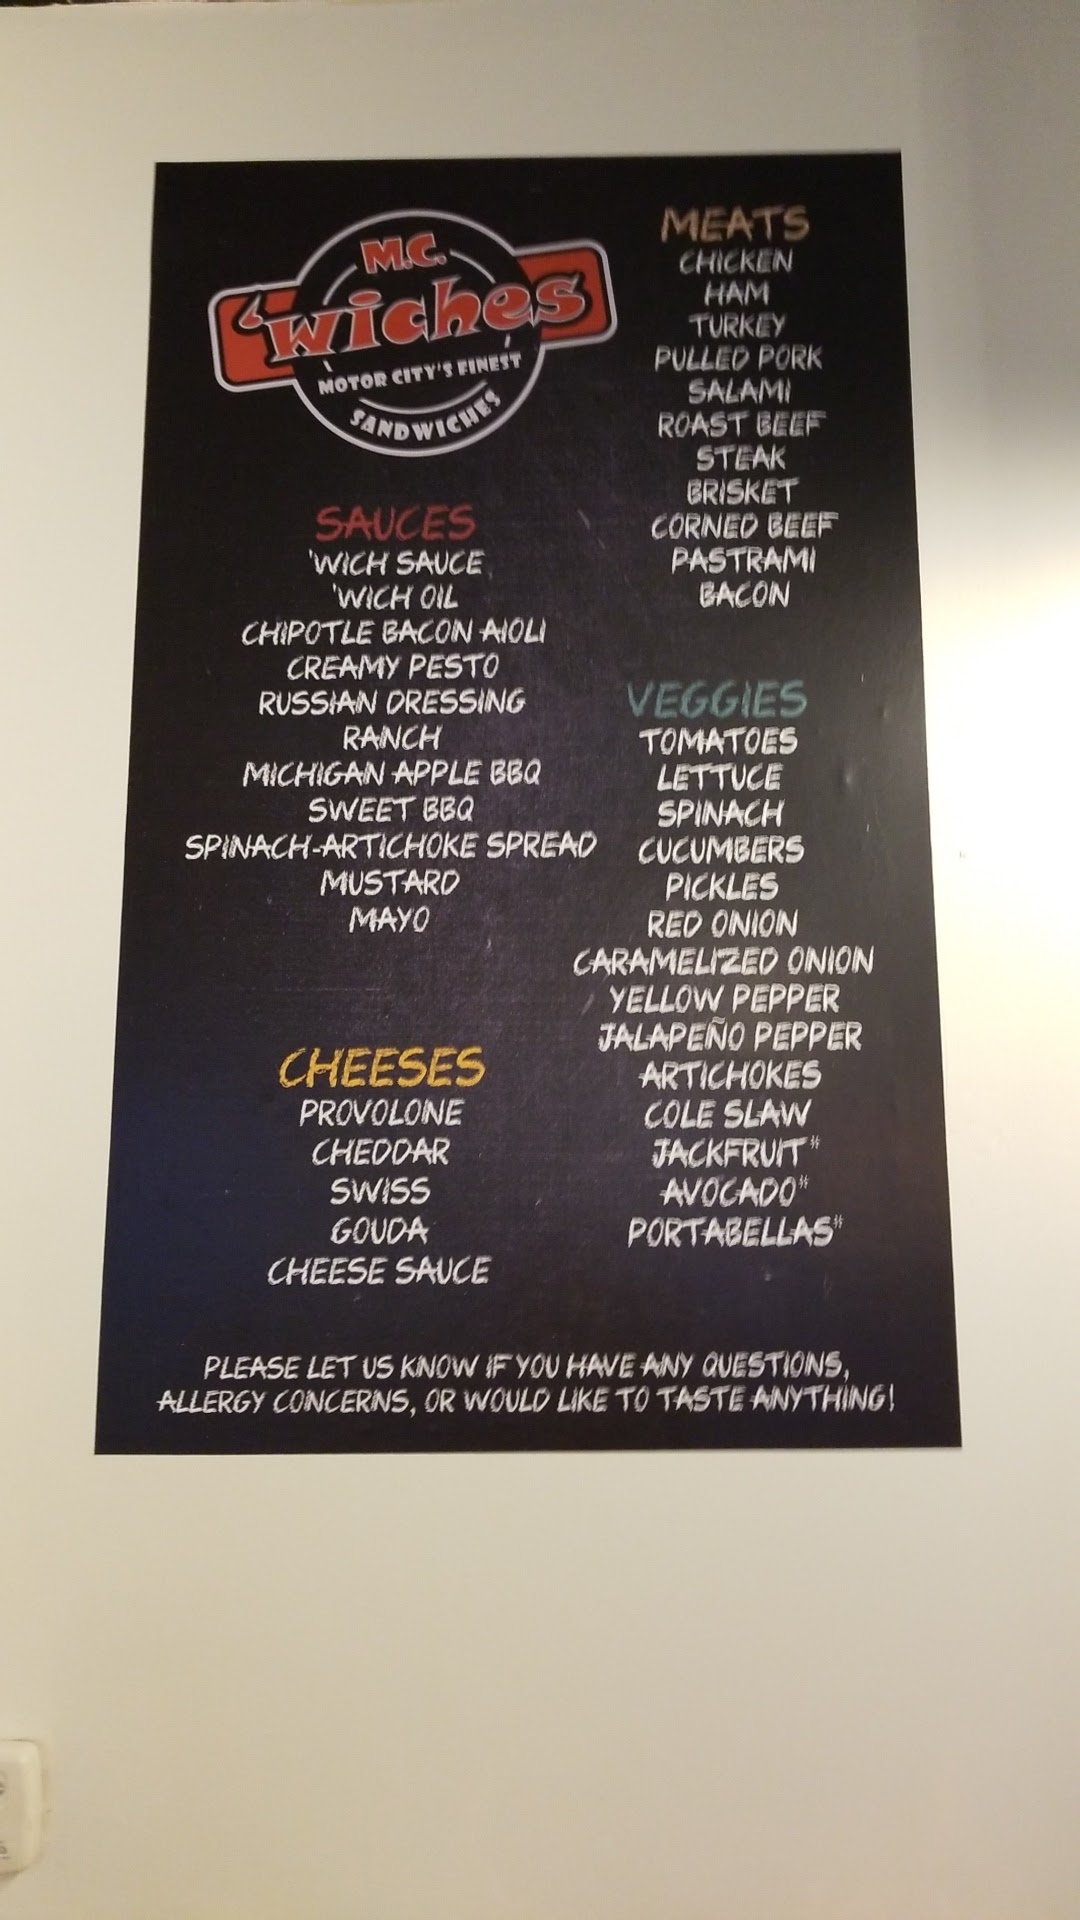 M.C.
'wiches
MOTOR CITY'S FINEST
SANDWICHES
SAUCES
'WICH SAUCE
'WICH OIL
CHIPOTLE BACON AIOLI
CREAMY PESTO
RUSSIAN DRESSING
RANCH
MICHIGAN APPLE BBQ
SWEET BBQ
SPINACH-ARTICHOKE SPREAD
MUSTARD
MAYO
CHEESES
PROVOLONE
CHEDDAR
SWISS
GOUDA
CHEESE SAUCE
MEATS
CHICKEN
HAM
TURKEY
PULLED PORK
SALAMI
ROAST BEEF
STEAK
BRISKET
CORNED BEEF
PASTRAMI
BACON
VEGGIES
TOMATOES
LETTUCE
SPINACH
CUCUMBERS
PICKLES
RED ONION
CARAMELIZED ONION
YELLOW PEPPER
JALAPEÑO PEPPER
ARTICHOKES
COLE SLAW
JACKFRUIT*
AVOCADO*
PORTABELLAS*
PLEASE LET US KNOW IF YOU HAVE ANY QUESTIONS,
ALLERGY CONCERNS, OR WOULD LIKE TO TASTE ANYTHING!